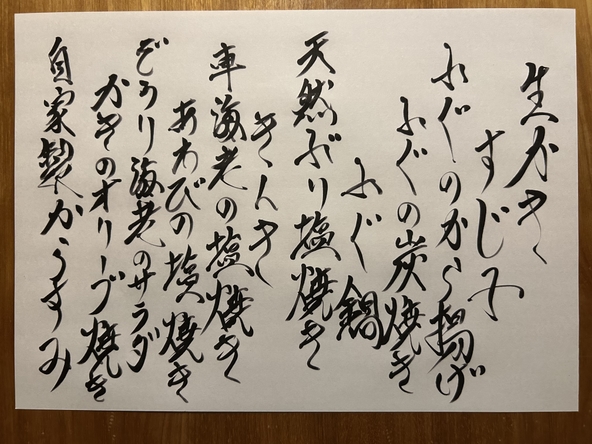 生かき
すじ子
ふぐのから揚げ
ふぐの炭焼き
ふぐ鍋
天然ぶり塩焼き
きんき
車海老の塩焼き
あわびの塩焼き
ぞうり海老のサラダ
かきのオリーブ焼き
自家製からすみ